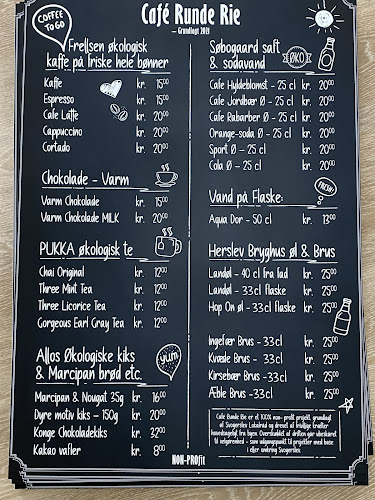 COFFEE TO GO
Café Runde Rie
— Grundlagt 2019
Frellsen økologisk
kaffe på friske hele bønner
Kaffe kr. 15⁰⁰
Espresso kr. 15⁰⁰
Cafe Latte kr. 20⁰⁰
Cappuccino kr. 20⁰⁰
Cortado kr. 20⁰⁰
Chokolade - Varm
Varm Chokolade kr. 15⁰⁰
Varm Chokolade MILK kr. 20⁰⁰
PUKKA økologisk te
Chai Original kr. 12⁰⁰
Three Mint Tea kr. 12⁰⁰
Three Licorice Tea kr. 12⁰⁰
Gorgeous Earl Gray Tea kr. 12⁰⁰
Allos Økologiske kiks
& Marcipan brød etc.
yum
Marcipan & Nougat 35g kr. 16⁰⁰
Dyre motiv kiks – 150g kr. 20⁰⁰
Konge Chokoladekiks kr. 32⁰⁰
Kakao vafler kr. 8⁰⁰
Søbogaard saft
& sodavand
ØKO
Cafe Hyldeblomst - 25 cl kr. 20⁰⁰
Cafe Jordbær Ø - 25 cl kr. 20⁰⁰
Cafe Rabarber Ø - 25 cl kr. 20⁰⁰
Orange-soda Ø - 25 cl kr. 20⁰⁰
Sport Ø - 25 cl kr. 20⁰⁰
Cola Ø - 25 cl kr. 20⁰⁰
Vand på Flaske:
FRESH!
Aqua Dor - 50 cl kr. 13⁰⁰
Herslev Bryghus øl & Brus
Landøl - 40 cl fra fad kr. 25⁰⁰
Landøl - 33cl flaske kr. 25⁰⁰
Hop On øl - 33cl flaske kr. 25⁰⁰
Ingefær Brus - 33cl kr. 25⁰⁰
Kvæde Brus - 33cl kr. 25⁰⁰
Kirsebær Brus - 33cl kr. 25⁰⁰
Æble Brus - 33cl kr. 25⁰⁰
Café Runde Rie er et 100% non- profit projekt, grundlagt
af Svogerslev Lokalråd og drevet af frivillige kræfter
hovedsageligt fra byen. Overskuddet af driften går ubeskåret
til velgørenhed - som udgangspunkt til projekter med base
i eller omkring Svogerslev.
NON-PROfit